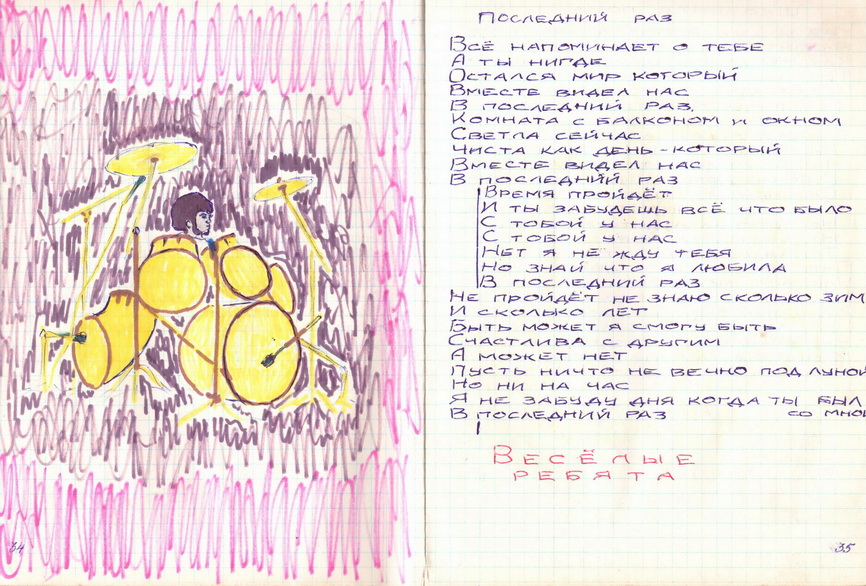 Последний раз
Всё напоминает о тебе
А ты нигде
Остался мир который
Вместе видел нас
В последний раз.
Комната с балконом и окном
Светла сейчас
Чиста как день - который
Вместе видел нас
В последний раз
Время пройдёт
И ты забудешь всё что было
С тобой у нас
С тобой у нас
Нет я не жду тебя
Но знай что я любила
В последний раз
Не пройдёт не знаю сколько зим
И сколько лет
Быть может я смогу быть
Счастлива с другим
А может нет
Пусть ничто не вечно под луной
Но ни на час
Я не забуду дня когда ты был
В последний раз со мно
Весёлые
ребята
34
35